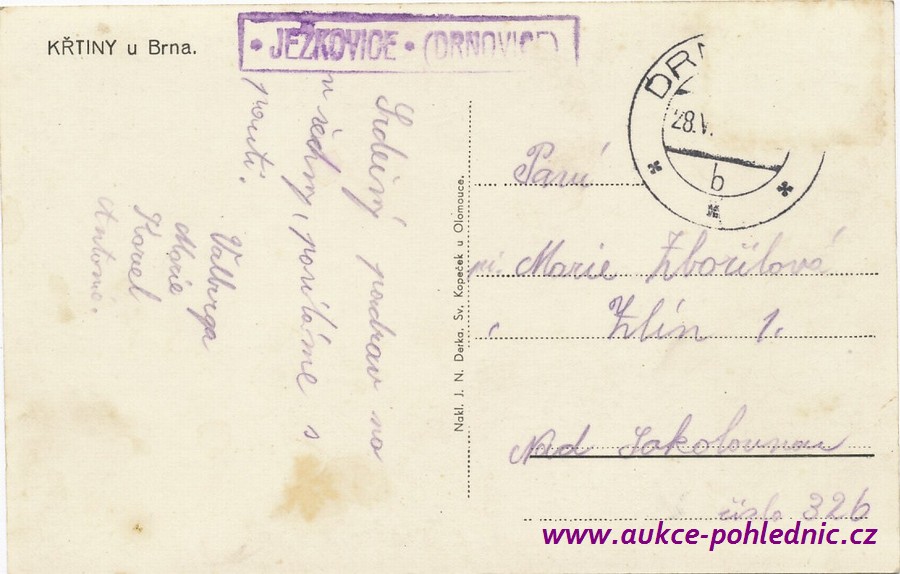 KŘTINY u Brna.
• JEŽKOVICE • (DRNOVICE)
DRN
28.V.
b
Srdečný pozdrav na
všechny, posíláme s
pouti.
Valburga
Marie
Karel
Antonie.
Nakl. J. N. Derka, Sv. Kopeček u Olomouce.
Paní
Marie Zbořilová
Zlín 1.
Nad Sokolovnou
číslo 326
www.aukce-pohlednic.cz